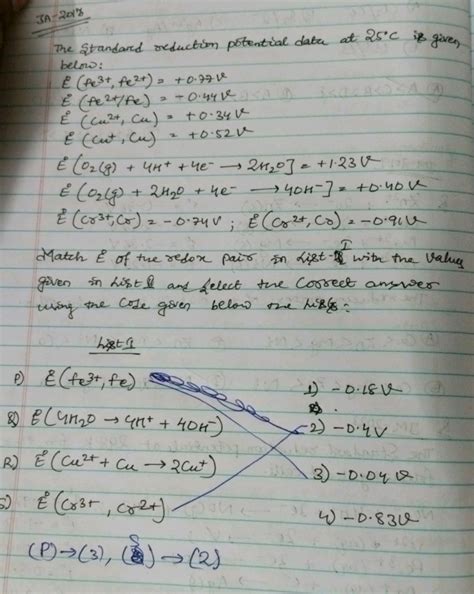 JA-2018
The Standard reduction potential data at 25°C is given
below:
E° (Fe3+, Fe2+) = +0.77V
E° (Fe2+/Fe) = -0.44V
E° (Cu2+, Cu) = +0.34V
E° (Cu+, Cu) = +0.52V
E° [O2(g) + 4H+ + 4e- → 2H2O] = +1.23V
E° [O2(g) + 2H2O + 4e- → 4OH-] = +0.40V
E° (Cr3+, Cr) = -0.74V ; E° (Cr2+, Cr) = -0.91V
Match E° of the redox pair in List-I with the values
given in List and select the correct answer
using the code given below the lists:
List I
P) E° (Fe3+, Fe) 1) -0.18V
Q) E° (4H2O → 4H+ + 4OH-) 2) -0.4V
R) E° (Cu2+ + Cu → 2Cu+) 3) -0.04V
S) E° (Cr3+, Cr2+) 4) -0.83V
(P) → (3), (S) → (2)